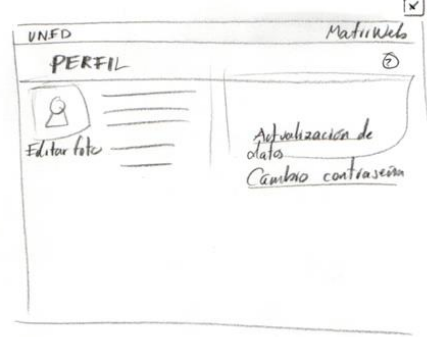 UNED
MatriWeb
PERFIL
?
Editar foto
Actualización de
datos
Cambio contraseña